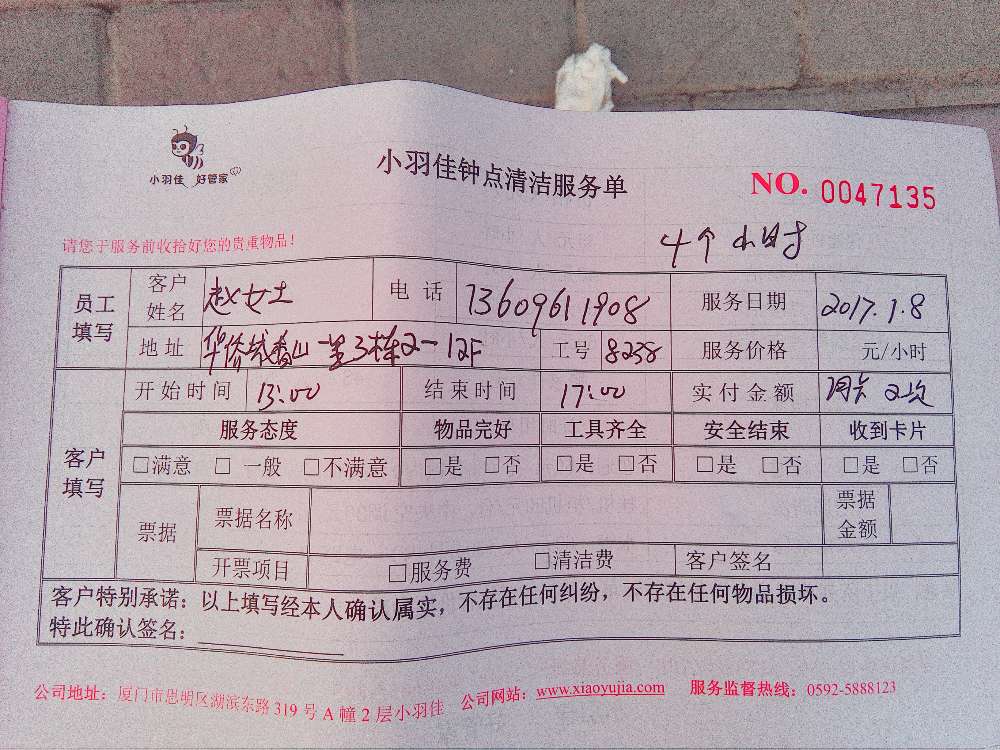 小羽佳 好管家
小羽佳钟点清洁服务单
NO. 0047135
请您于服务前收拾好您的贵重物品！
4个小时
员工填写 客户姓名 赵女士 电话 13609611908 服务日期 2017.1.8
地址 华侨城香山一里3栋2-12F 工号 8238 服务价格 元/小时
客户填写 开始时间 13:00 结束时间 17:00 实付金额 周卡2次
服务态度 物品完好 工具齐全 安全结束 收到卡片
□满意 □一般 □不满意 □是 □否 □是 □否 □是 □否 □是 □否
票据 票据名称 票据金额
开票项目 □服务费 □清洁费 客户签名
客户特别承诺：以上填写经本人确认属实，不存在任何纠纷，不存在任何物品损坏。
特此确认签名：
公司地址：厦门市思明区湖滨东路319号A幢2层小羽佳 公司网站：www.xiaoyujia.com 服务监督热线：0592-5888123